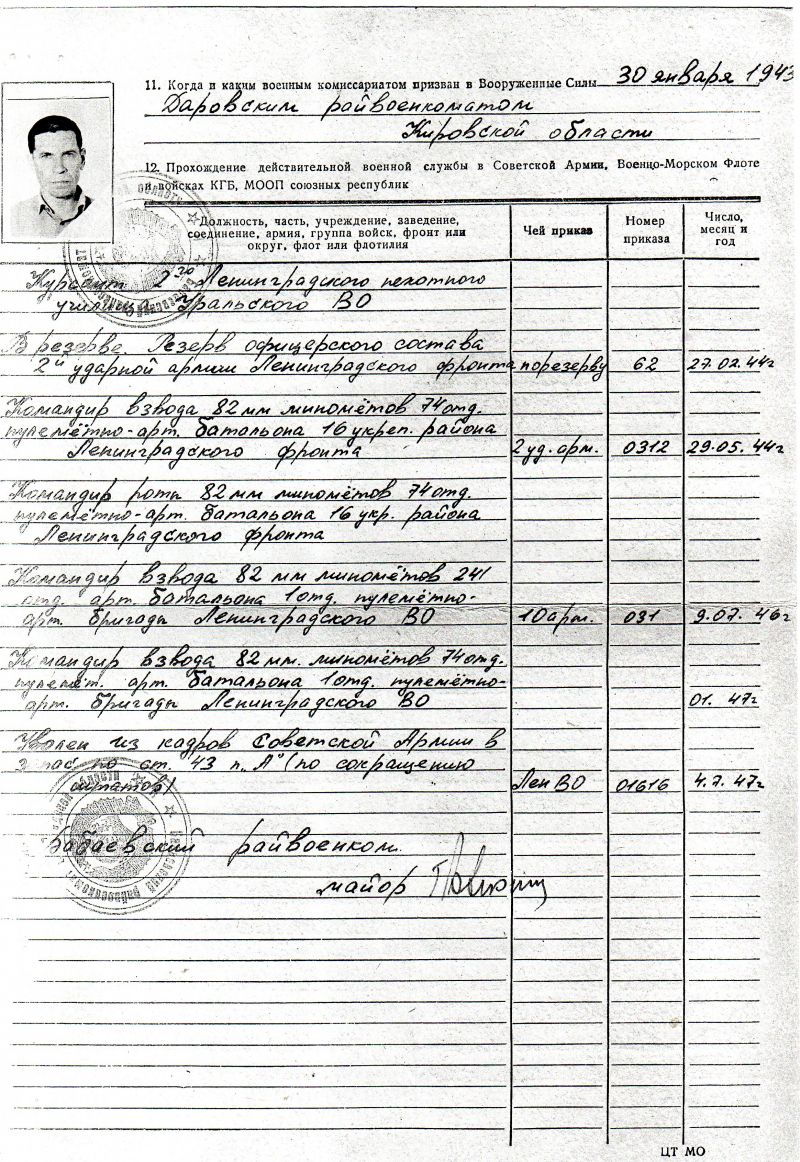 11. Когда и каким военным комиссариатом призван в Вооруженные Силы 30 января 1943
Даровским райвоенкоматом
Кировской области
12. Прохождение действительной военной службы в Советской Армии, Военно-Морском Флоте
и войсках КГБ, МООП союзных республик
Должность, часть, учреждение, заведение, соединение, армия, группа войск, фронт или округ, флот или флотилия
Чей приказ
Номер приказа
Число, месяц и год
Курсант 2го Ленинградского пехотного
училища Уральского ВО
В резерве. Резерв офицерского состава
2й ударной армии Ленинградского фронта по резерву 62 27.02.44г
Командир взвода 82 мм миномётов 74 отд.
пулемётно-арт. батальона 16 укреп. района
Ленинградского фронта 2 уд. арм. 0312 29.05.44г
Командир роты 82 мм миномётов 74 отд.
пулемётно-арт. батальона 16 укр. района
Ленинградского фронта
Командир взвода 82 мм миномётов 241
отд. арт. батальона 1 отд. пулемётно-
арт. бригады Ленинградского ВО 10 арм. 031 9.07.46г
Командир взвода 82 мм. миномётов 74 отд.
пулемёт. арт. батальона 1 отд. пулемётно-
арт. бригады Ленинградского ВО 01.47г
Уволен из кадров Советской Армии в
запас по ст. 43 п. „А" (по сокращению
штатов) Лен ВО 01616 4.7.47г
Бабаевский райвоенком.
майор
ЦТ МО